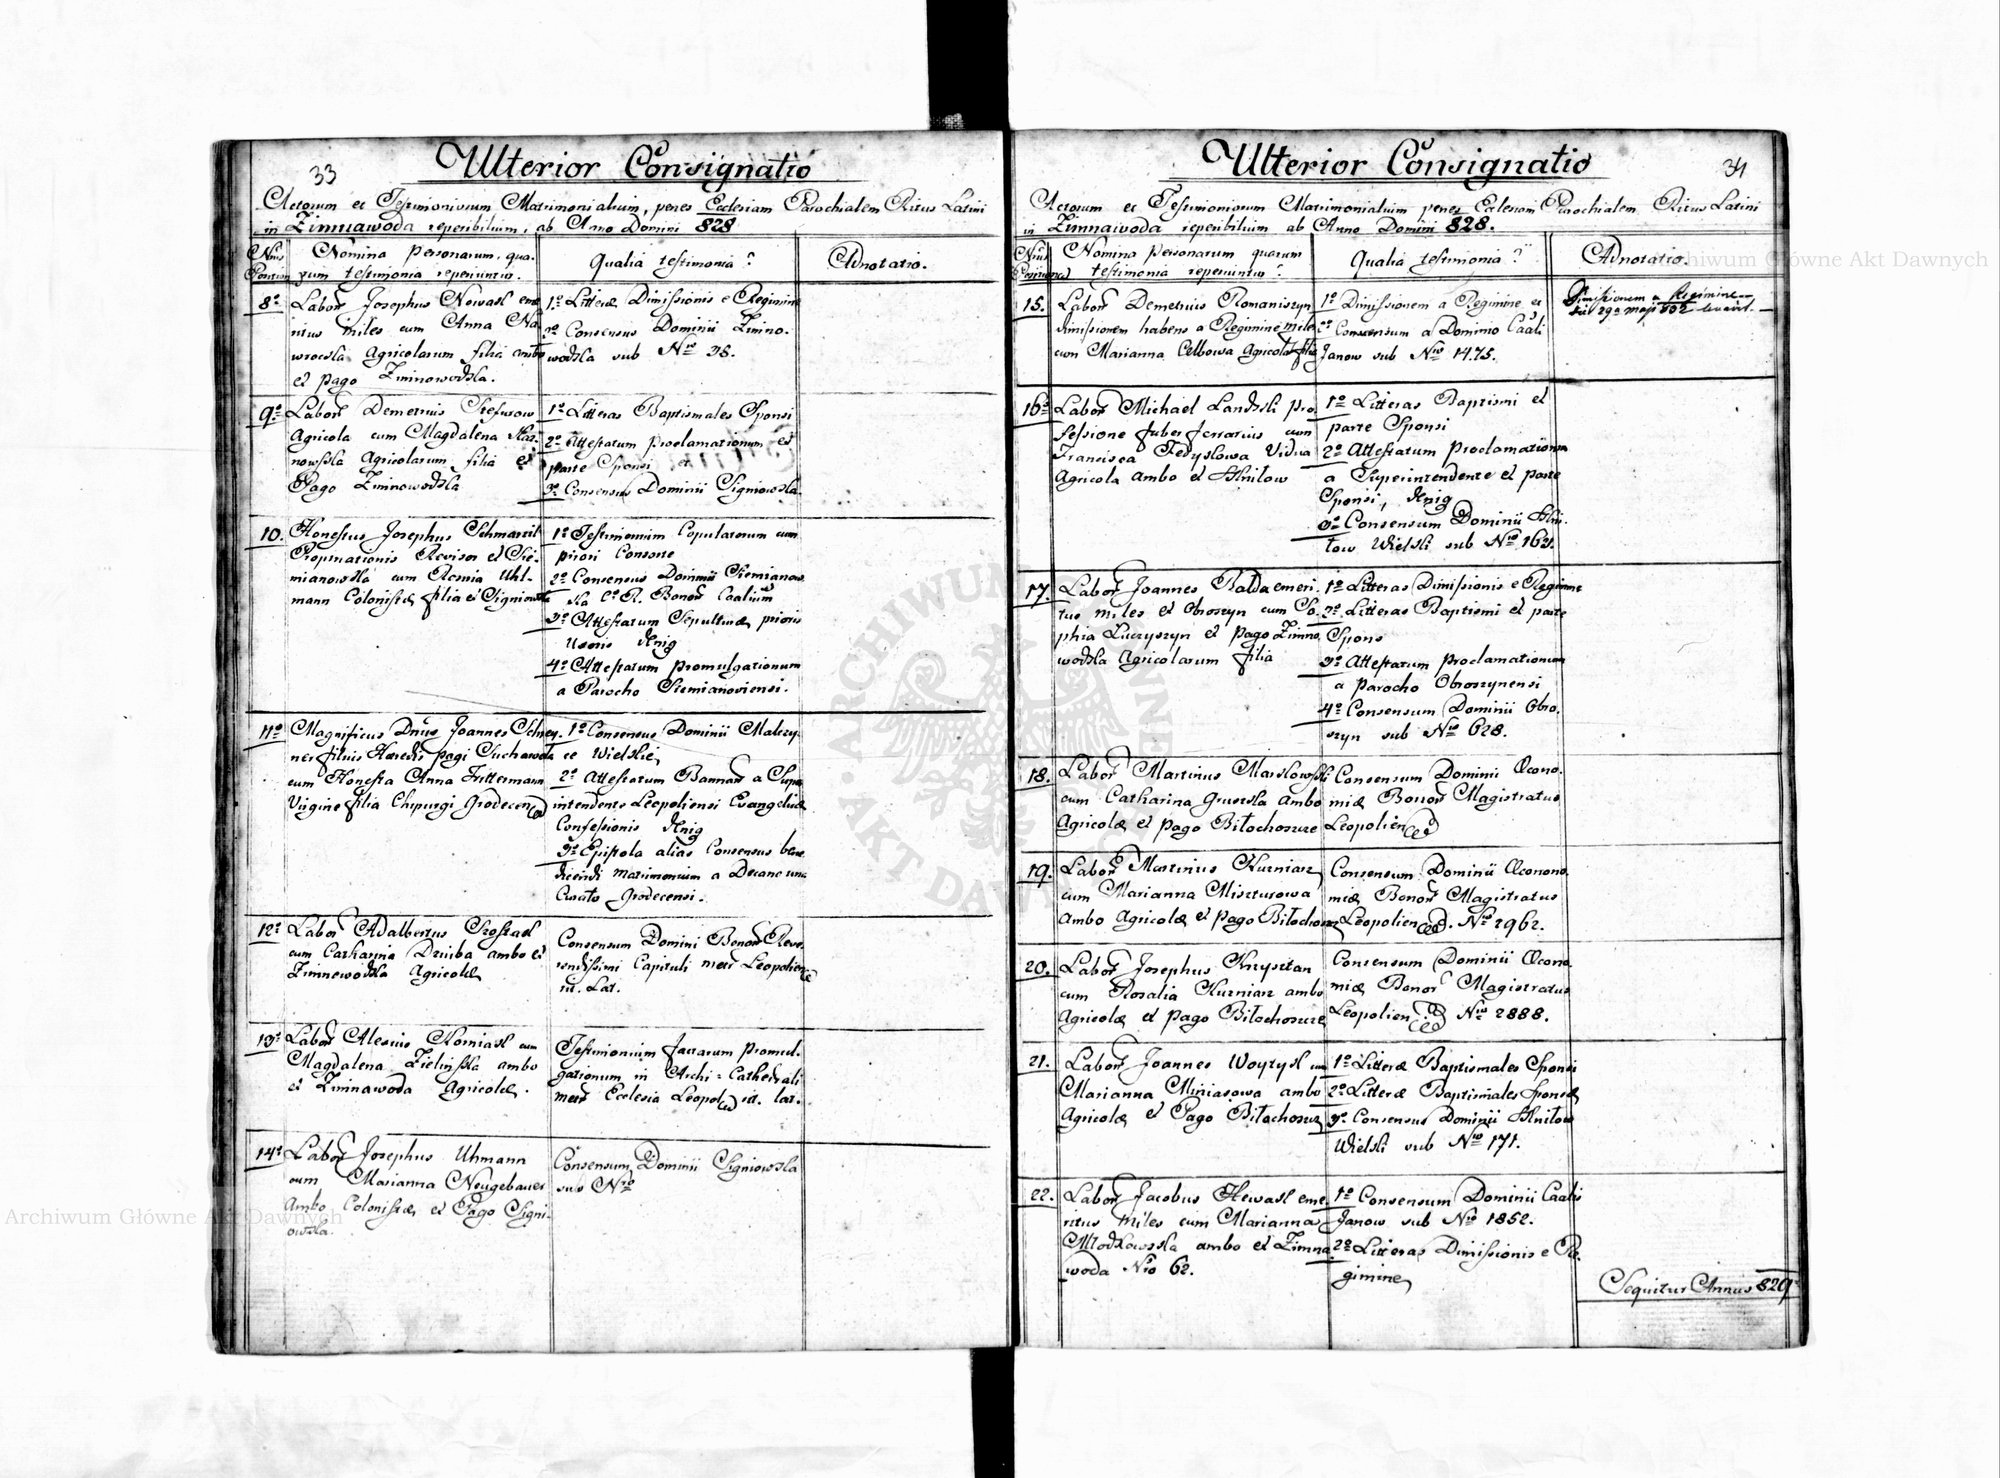 33
Ulterior Consignatio
Actorum et Testimoniorum Matrimonialium, penes Ecclesiam Parochialem Ritus Latini
in Zimnawoda reperibilium, ab Anno Domini 828
Nrus Positionum
Nomina personarum, qua-
rum testimonia reperiuntur.
Qualia testimonia?
Adnotatio.
8o
Labor Josephus Nowasl eme
ritus miles cum Anna Na
wrocka Agricolarum filia ambo
ex pago Zimnowodzka.
1o Litterae Dimissionis e Regimine
2o Consensus Dominii Zimno-
wodzka sub Nro 38.
9o
Labor Demetrius Stefurow
Agricola cum Magdalena
nowska Agricolarum filia ex
Pago Zimnowodzka
1o Litteras Baptismales Sponsi
2o Attestatum proclamationum ex
parte Sponsi et
3o Consensus Dominii Signiowska
10.
Honestus Josephus Schmarzil
Propinationis Revisor ex Sie-
mianowska cum Uhl-
mann Colonistae filia ex Signiowka
1o Testimonium Copulatorum cum
priori Consorte
2o Consensus Dominii Siemianow
ska Bonor Caalium
3o Attestatum Sepulturae prioris
Uxoris
4o Attestatum promulgationum
a Parocho Siemianoviensi.
11o
Magnificus Dnus Joannes Schney-
ner filius Haeredis pagi Suchawola
cum Honesta Anna Frittermann
Virgine filia Chyrurgi Grodecen
1o Consensus Dominii Malczy
ce Wielkie
2o Attestatum Bannor a Supe
intendente Leopoliensi Evangelicae
Confessionis
3o Epistola alias Consensus bene
dicendi matrimonium a Decano una
Curato Grodecensi.
12o
Labor Adalbertus Szostasl
cum Catharina Dziuba ambo ex
Zimnewodzka Agricolae
Consensum Domini Bonor Reve-
rendissimi Capituli metr Leopoliens
rit. Lat.
13o
Labor Alexius Korniasl cum
Magdalena Zielinska ambo
ex Zimnawoda Agricolae.
Testimonium factarum promul-
gationum in Archi-Cathedrali
metr Ecclesia Leopol rit. lat.
14o
Labor Josephus Uhmann
cum Marianna Neugebauer
Ambo Colonistae ex Pago Signi-
owka.
Consensum Dominii Signiowska
sub Nro
34
Ulterior Consignatio
Actorum et Testimoniorum Matrimonialium penes Ecclesiam Parochialem Ritus Latini
in Zimnawoda reperibilium ab Anno Domini 828.
Nrus Positionum
Nomina personarum quarum
testimonia reperiuntur?
Qualia testimonia?
Adnotatio.
15.
Labor Demetrius Romaniszyn
dimissionem habens a Regimine mile
cum Marianna Celbowa Agricolae filia
1o Dimissionem a Regimine et
2o Consensum a Dominio Caali
Janow sub Nro 1475.
Dimissionem a Regimine
29a maji 832 levavit.
16o
Labor Michael Landzki pro
fessione faber ferrarius cum
Francisca Fedyskowa Vidua
Agricola ambo ex Hnilow
1o Litteras Baptismi ex
parte Sponsi
2o Attestatum proclamationum
a Superintendente ex parte
Sponsi,
3o Consensum Dominii Hni-
low Wielki sub Nro 162.
17.
Labor Joannes Balda emeri-
tus miles ex Obroszyn cum So-
phia Luczyszyn ex pago Zimno
wodzka Agricolarum filia
1o Litteras Dimissionis e Regimine
2o Litteras Baptismi ex parte
Spons
3o Attestatum proclamationum
a parocho Obroszynensi
4o Consensum Dominii Obro-
szyn sub Nro 628.
18.
Labor Martinus Maslowski
cum Catharina ambo
Agricolae ex pago Bilochorsze
Consensum Dominii Oecono-
miae Bonor Magistratus
Leopolien
19.
Labor Martinus Kurniasz
cum Marianna Miszturowa
ambo Agricolae ex pago Bilochorsze
Consensum Dominii Oecono-
miae Bonor Magistratus
Leopolien. Nro 2962.
20.
Labor Josephus Krzysztan
cum Rosalia Kurniasz ambo
Agricolae ex pago Bilochorsze
Consensum Dominii Oecono-
miae Bonor Magistratus
Leopolien Nro 2888.
21.
Labor Joannes Woytysl cum
Marianna Miniasowa ambo
Agricolae ex Pago Bilochorsze
1o Litterae Baptismales Sponsi
2o Litterae Baptismales Sponsae
3o Consensus Dominii Hnilow
Wielki sub Nro 171.
22.
Labor Jacobus Hewasl eme
ritus miles cum Marianna
Mlodkowska ambo ex Zimna
woda Nro 62.
1o Consensum Dominii Caalis
Janow sub Nro 1852.
2o Litteras Dimissionis e Re-
gimine
Sequitur Annus 829
Archiwum Główne Akt Dawnych
Archiwum Główne Akt Dawnych
ARCHIWUM GŁÓWNE AKT DAWNYCH